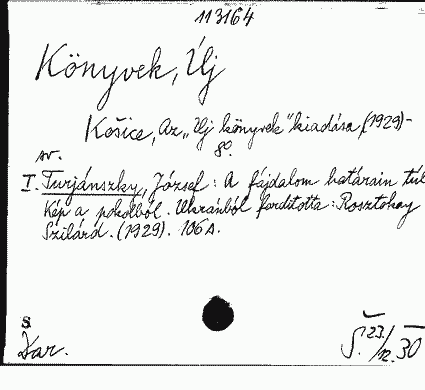 113164
Könyvek, Új
Košice, Az „Új könyvek" kiadása, (1929)-
8°.
sv.
I. Turjánszky, József: A fájdalom határain túl
Kép a pokolból. Ukránból fordította: Rosztokay
Szilárd. (1929). 106 s.
S
Dar.
Š. 123/12.30